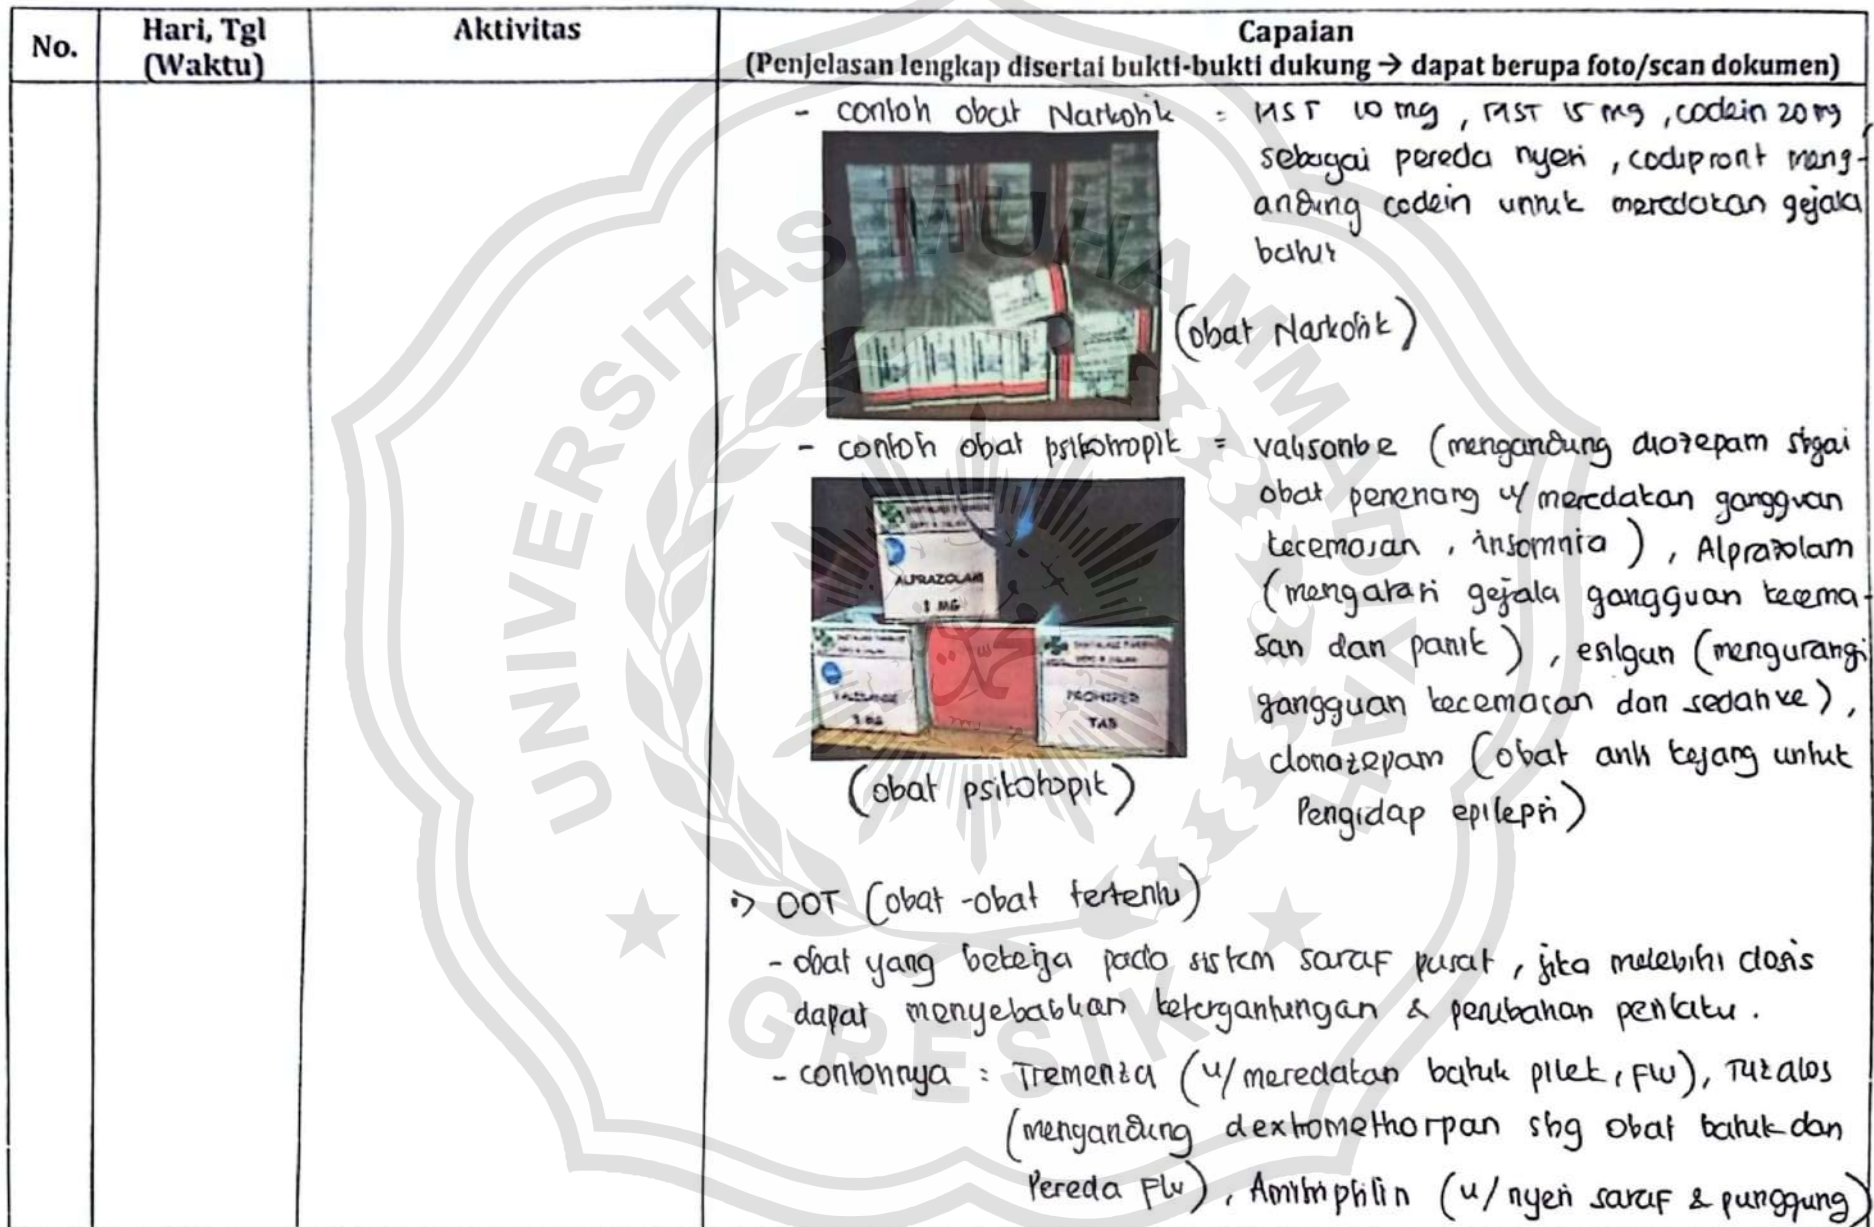 No.
Hari, Tgl
(Waktu)
Aktivitas
Capaian
(Penjelasan lengkap disertai bukti-bukti dukung → dapat berupa foto/scan dokumen)
- contoh obat Narkotik = MST 10 mg, MST 15 mg, codein 20 mg,
sebagai pereda nyeri, codipront meng-
andung codein untuk meredakan gejala
batuk
(obat Narkotik)
- contoh obat psikotropik = valisanbe (mengandung diazepam sbgai
obat penenang u/ meredakan gangguan
kecemasan, insomnia), Alprazolam
(mengatasi gejala gangguan kecema-
san dan panik), esilgan (mengurangi
gangguan kecemasan dan sedative),
clonazepam (obat anti kejang untuk
Pengidap epilepsi)
ALPRAZOLAM
1 MG
VALISANBE
TAB
(obat psikotropik)
=> OOT (obat-obat tertentu)
- obat yang bekerja pada sistem saraf pusat, jika melebihi dosis
dapat menyebabkan ketergantungan & perubahan perilaku.
- contohnya = Tremenza (u/ meredakan batuk pilek, Flu), Tuzalos
(mengandung dextromethorpan sbg obat batuk dan
Pereda Flu), Amitriphilin (u/ nyeri saraf & punggung)
UNIVERSITAS MUHAMMADIYAH
GRESIK